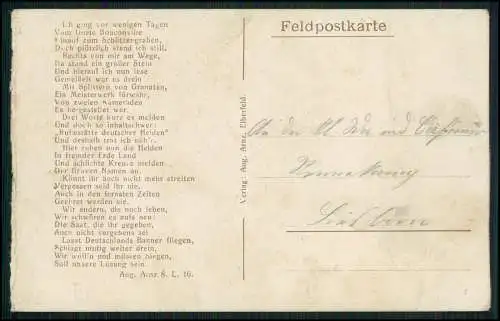 Ich ging vor wenigen Tagen
Vom Gute Bonconville
Hinauf zum Schützengraben,
Doch plötzlich stand ich still.
Rechts von mir am Wege,
Da stand ein großer Stein
Und hierauf ich nun lese
Gemeißelt war es drein
Mit Splittern von Granaten,
Ein Meisterwerk fürwahr,
Von zweien Kameraden
Es hergestellet war.
Drei Worte kurz es melden
Und doch so inhaltschwer:
"Ruhestätte deutscher Helden"
Und deshalb trat ich näh'r.
Hier ruhen nun die Helden
In fremder Erde Land
Und schlichte Kreuze melden
Der Braven Namen an.
Könnt ihr doch nicht mehr streiten
Vergessen seid ihr nie.
Auch in den fernsten Zeiten
Geehret werden sie.
Wir ändern, die noch leben,
Wir schwören es aufs neu:
Die Saat, die ihr gegeben,
Auch nicht vergebens sei
Lasst Deutschlands Banner fliegen,
Schlagt mutig weiter drein,
Wir woll'n und müssen siegen,
Soll unsere Losung sein.
Aug. Arnz 8. L. 16.
Verlag: Aug. Arnz, Elberfeld.
Feldpostkarte
An die